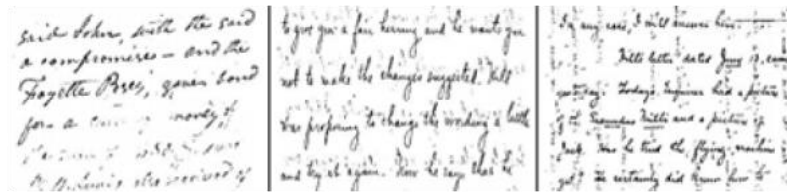 said John, with the said
a compromise — and the
Fayette Bres, given bond
for a money,
received of
to give you a fair hearing and he wants you
not to make the changes suggested. Will
was preparing to change the wording a little
and try it again. Now he says that he
In any case, I will answer him.
Will's letter dated June 13, came
yesterday. Today's Inquirer had a picture
of the Willis and a picture of
Jack. Now he tried the flying machine
yet? He certainly did know how to